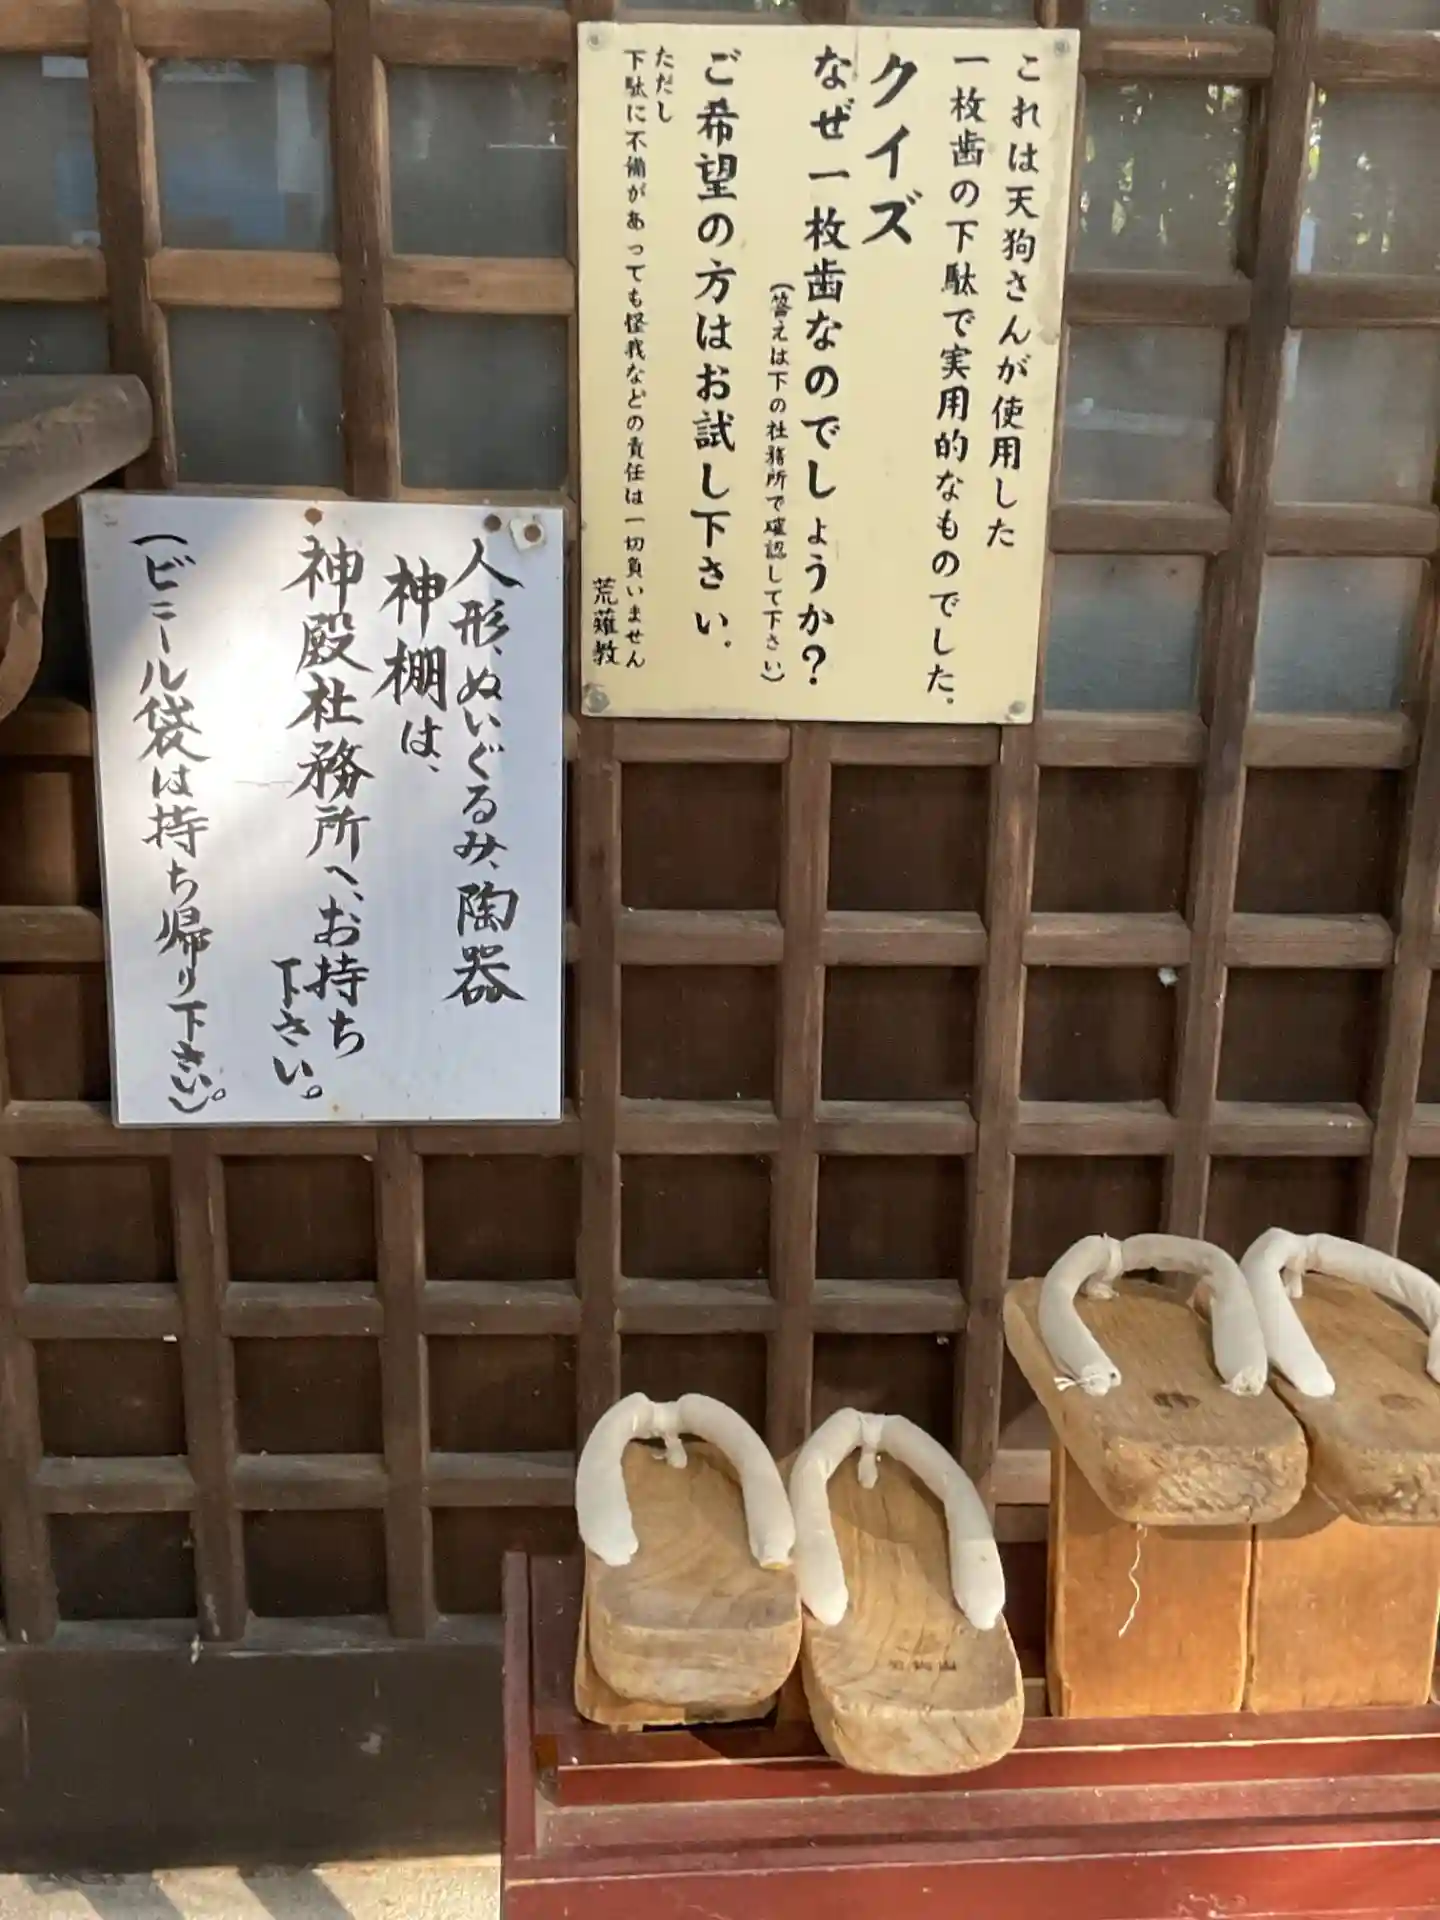 これは天狗さんが使用した
一枚歯の下駄で実用的なものでした。
クイズ
なぜ一枚歯なのでしょうか？
（答えは下の社務所で確認して下さい）
ご希望の方はお試し下さい。
ただし
下駄に不備があっても怪我などの責任は一切負いません
荒薙教
人形、ぬいぐるみ、陶器
神棚は、
神殿社務所へ、お持ち
下さい。
（ビニール袋は持ち帰り下さい。）